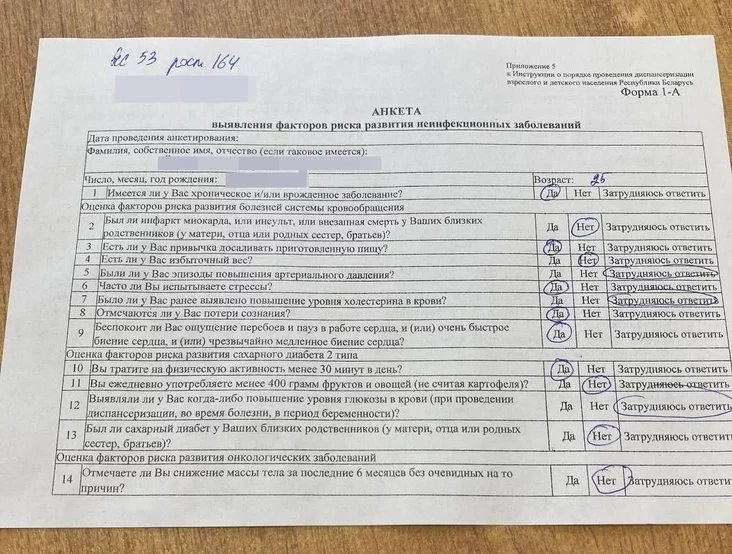 вес 53 рост 164
Приложение 5
к Инструкции о порядке проведения диспансеризации
взрослого и детского населения Республики Беларусь
Форма 1-А
АНКЕТА
выявления факторов риска развития неинфекционных заболеваний
Дата проведения анкетирования:
Фамилия, собственное имя, отчество (если таковое имеется):
Число, месяц, год рождения: Возраст: 26
1 Имеется ли у Вас хроническое и/или врожденное заболевание? Да Нет Затрудняюсь ответить
Оценка факторов риска развития болезней системы кровообращения
2 Был ли инфаркт миокарда, или инсульт, или внезапная смерть у Ваших близких
родственников (у матери, отца или родных сестер, братьев)? Да Нет Затрудняюсь ответить
3 Есть ли у Вас привычка досаливать приготовленную пищу? Да Нет Затрудняюсь ответить
4 Есть ли у Вас избыточный вес? Да Нет Затрудняюсь ответить
5 Были ли у Вас эпизоды повышения артериального давления? Да Нет Затрудняюсь ответить
6 Часто ли Вы испытываете стрессы? Да Нет Затрудняюсь ответить
7 Было ли у Вас ранее выявлено повышение уровня холестерина в крови? Да Нет Затрудняюсь ответить
8 Отмечаются ли у Вас потери сознания? Да Нет Затрудняюсь ответить
9 Беспокоит ли Вас ощущение перебоев и пауз в работе сердца, и (или) очень быстрое
биение сердца, и (или) чрезвычайно медленное биение сердца? Да Нет Затрудняюсь ответить
Оценка факторов риска развития сахарного диабета 2 типа
10 Вы тратите на физическую активность менее 30 минут в день? Да Нет Затрудняюсь ответить
11 Вы ежедневно употребляете менее 400 грамм фруктов и овощей (не считая картофеля)? Да Нет Затрудняюсь ответить
12 Выявляли ли у Вас когда-либо повышение уровня глюкозы в крови (при проведении
диспансеризации, во время болезни, в период беременности)? Да Нет Затрудняюсь ответить
13 Был ли сахарный диабет у Ваших близких родственников (у матери, отца или родных
сестер, братьев)? Да Нет Затрудняюсь ответить
Оценка факторов риска развития онкологических заболеваний
14 Отмечаете ли Вы снижение массы тела за последние 6 месяцев без очевидных на то
причин? Да Нет Затрудняюсь ответить